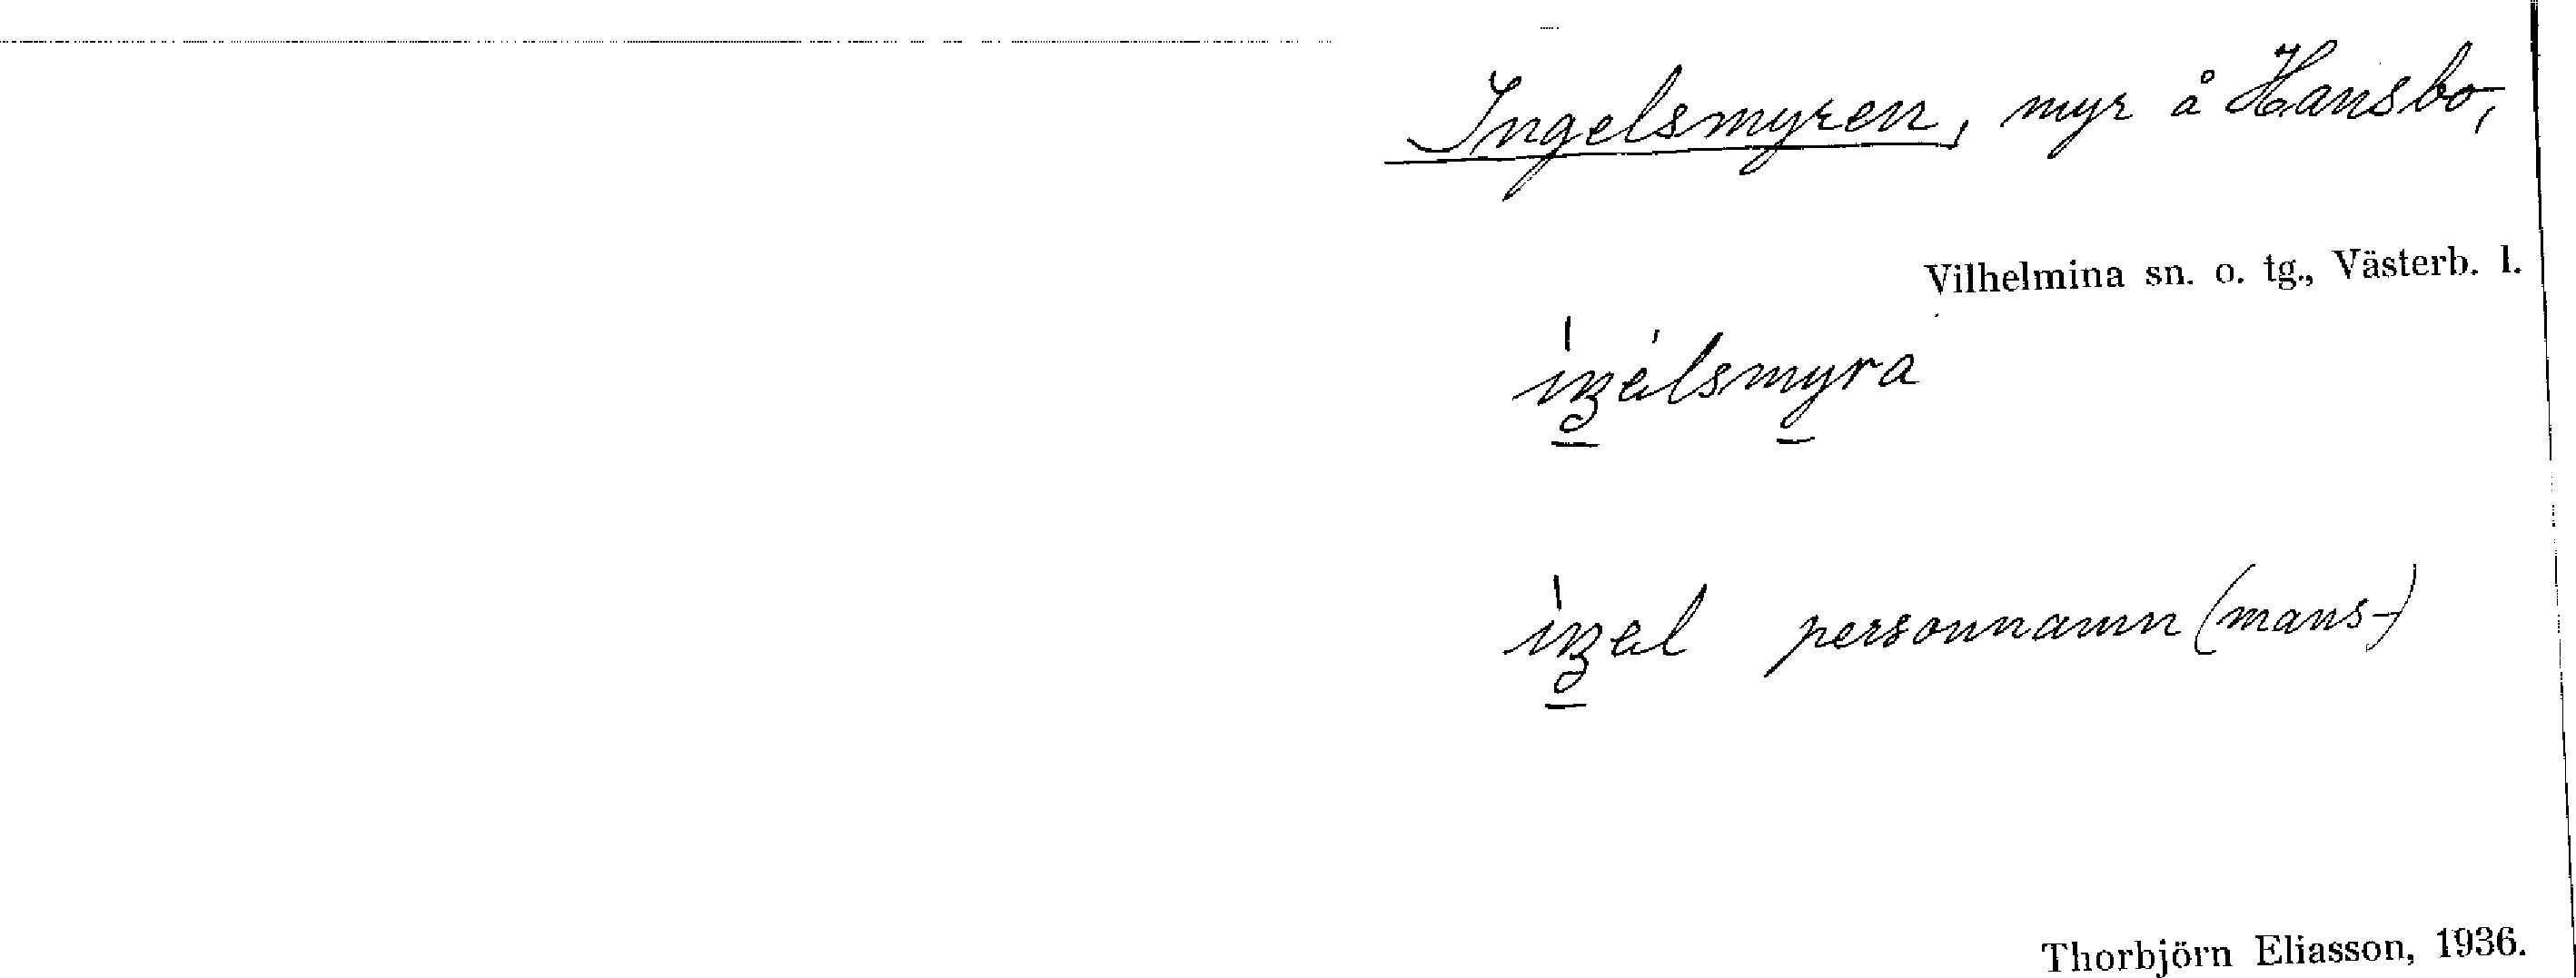 Ingelsmyren, myr å Hansbo,
Vilhelmina sn. o. tg., Västerb. l.
iꞑelsmyra
iꞑel personnamn (mans-)
Thorbjörn Eliasson, 1936.